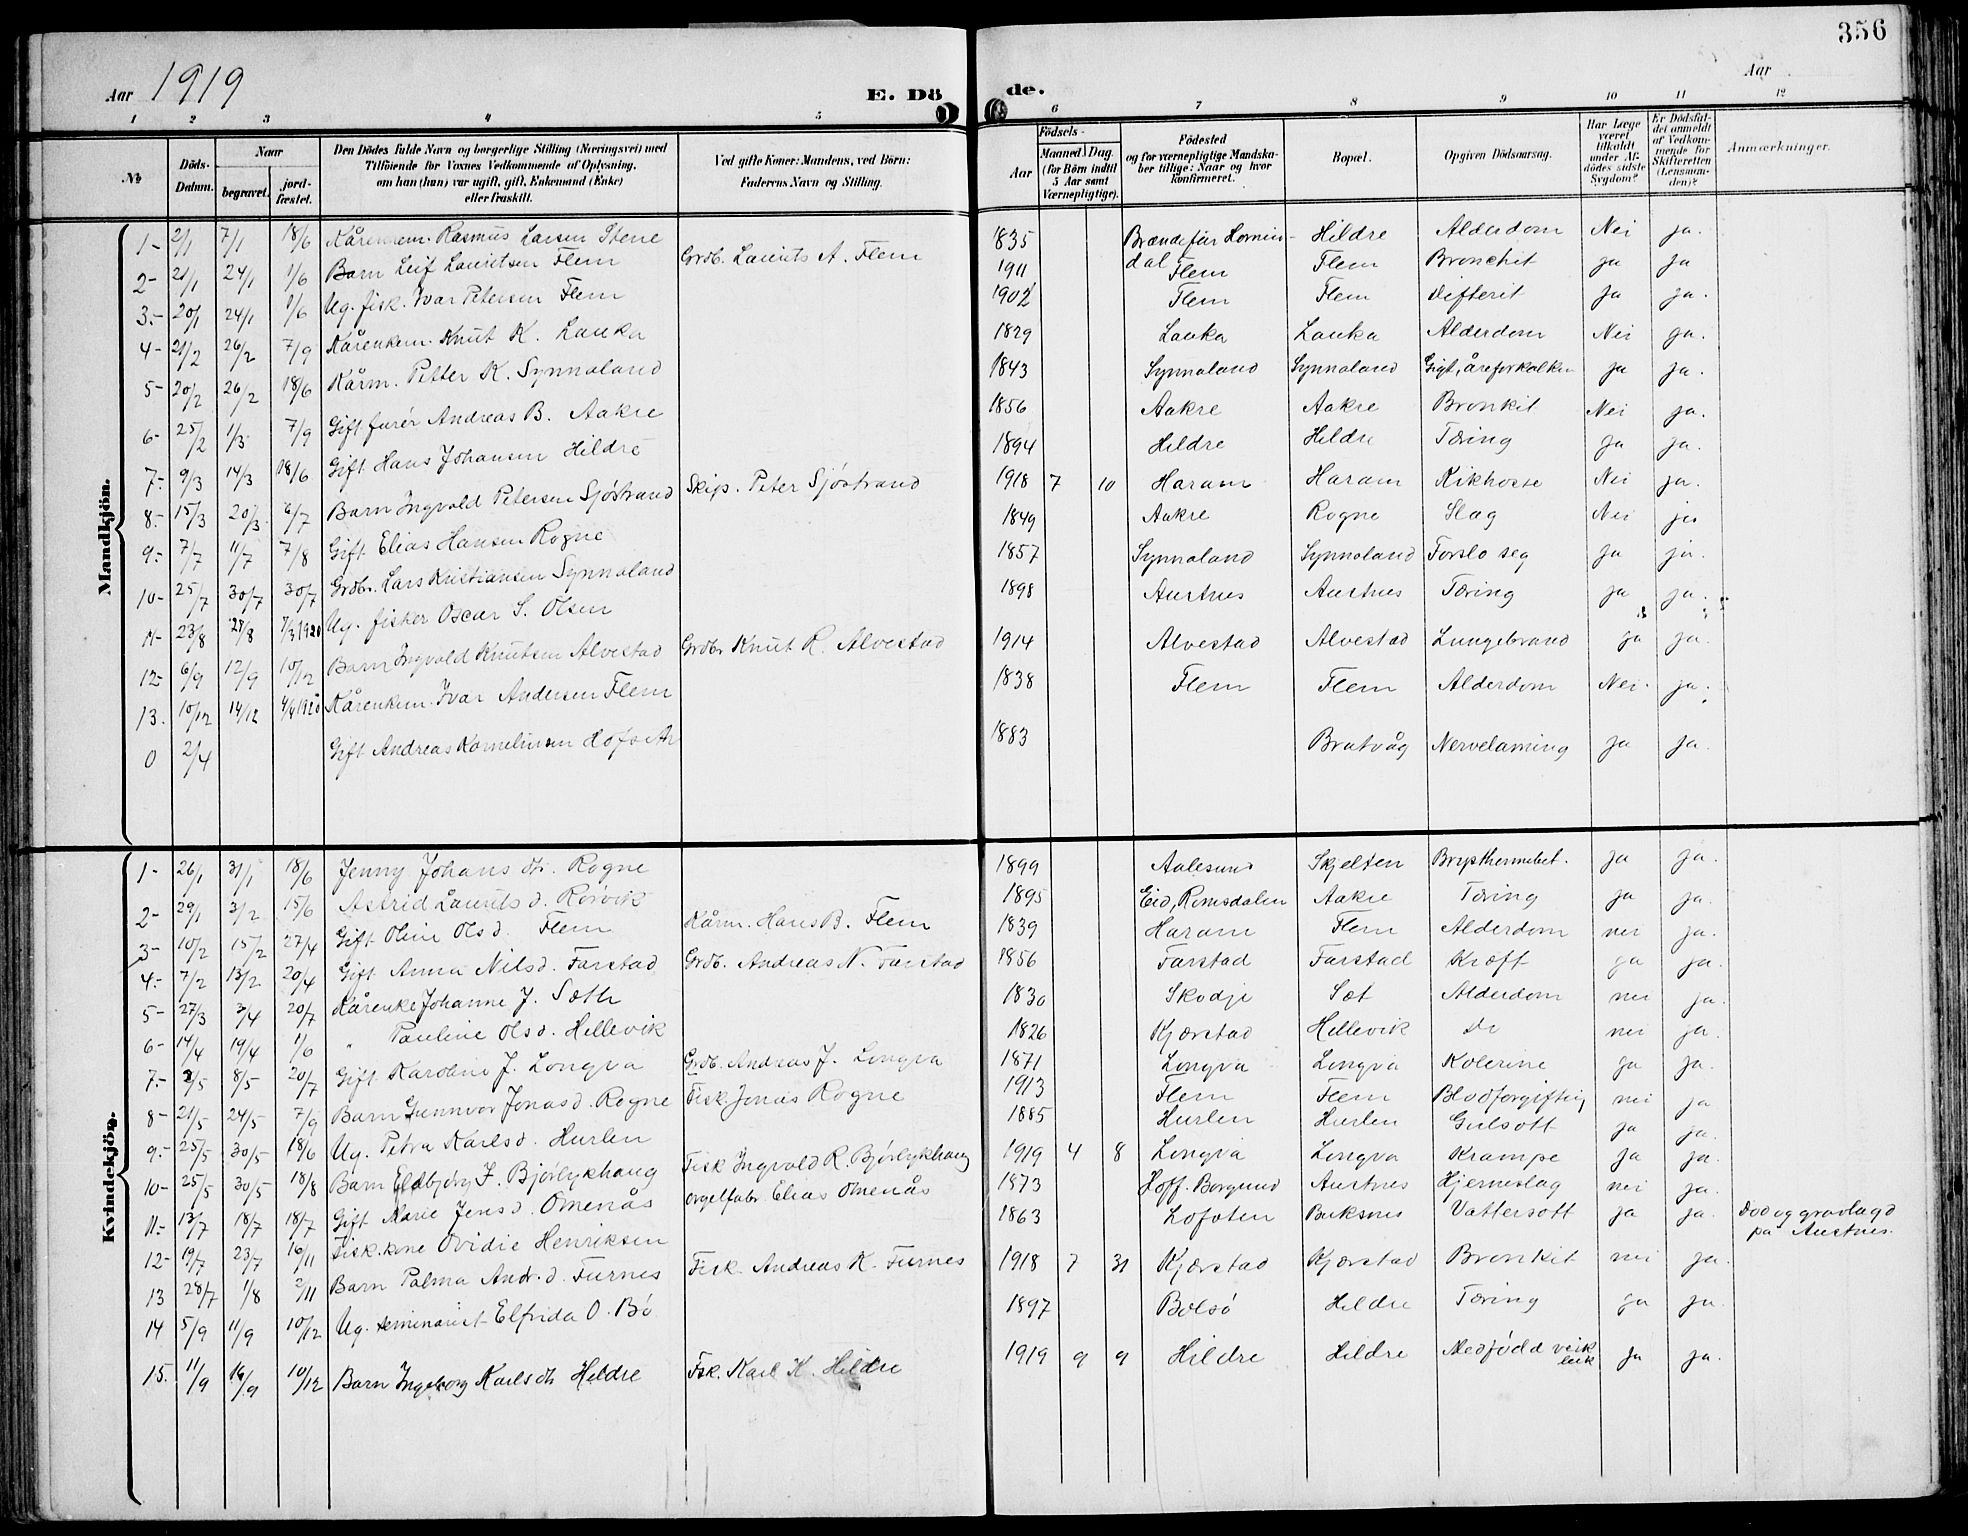 356
Aar 1919 E. Dö de. Aar
1 2 3 4 5 6 7 8 9 10 11 12
№ Döds-Datum. Naar begravet. jord-fæstet. Den Dödes fulde Navn og borgerlige Stilling (Næringsvei) med Tilföiende for Voxnes Vedkommende af Oplysning, om han (hun) var ugift, gift, Enkemand (Enke) eller fraskilt. Ved gifte Koner: Mandens, ved Börn: Faderens Navn og Stilling. Födsels- Aar Maaned Dag. (for Börn indtil 5 Aar samt Værnepligtige). Födested og for værnepligtige Mandskaber tillige: Naar og hvor konfirmeret. Bopæl. Opgiven Dödsaarsag. Har Læge været tilkaldt under Afdödes sidste Sygdom? Er Dödsfaldet anmeldt af Vedkommende for Skifteretten (Lensmanden)? Anmærkninger.
Mandkjön.
1- 2/1 7/1 18/6 Kårenkem. Rasmus Larsen Stene 1835 Hornindal Hildre Alderdom Nei ja.
2- 21/1 24/1 1/6 Barn Leif Lauritsen Flem Grdb. Laurits A. Flem 1911 Flem Flem Bronchit ja ja
3.- 20/1 24/1 1/6 Ug. fisk. Ivar Petersen Flem 1902 Flem Flem difterit ja ja.
4- 21/2 26/2 7/9 Kårenkem. Knut K. Lauka 1829 Lauka Lauka Alderdom Nei ja.
5- 20/2 26/2 18/6 Kårm. Petter K. Synnaland 1843 Synnaland Synnaland Gigt, åreforkalken ja ja.
6- 25/2 1/3 7/9 Gift furér Andreas B. Aakre 1856 Aakre Aakre Bronkit Nei ja.
7- 9/3 14/3 18/6 Gift Hans Johansen Hildre 1894 Hildre Hildre Tæring ja ja.
8.- 15/3 20/3 6/7 Barn Ingvald Petersen Sjöstrand Skips. Peter Sjöstrand 1918 7 10 Haram Haram Kikhoste Nei ja.
9.- 7/7 11/7 7/8 Gift Elias Hansen Rogne 1849 Aakre Rogne Slag Nei ja
10- 25/7 30/7 30/7 Grdbr. Lars Kristiansen Synnaland 1857 Synnaland Synnaland Forslo seg ja ja.
11- 23/8 28/8 7/3 1920 Ug. fisker Oscar S. Olsen 1898 Austnes Austnes Tæring ja ja.
12- 6/9 12/9 10/12 Barn Ingvald Knutsen Alvestad Grdbr Knut R. Alvestad 1914 Alvestad Alvestad Lungebrand ja ja.
13. 10/12 14/12 4/4 1920 Kårenkem. Ivar Andersen Flem 1838 Flem Flem Alderdom Nei. ja.
0 2/4 Gift Andreas Korneliussen Hofseth 1883 Bratvåg Nervelaming ja ja.
Kvindekjön.
1- 26/1 31/1 18/6 Jenny Johans dtr. Rogne 1899 Aalesund Skjelten Brysthinnebet. ja ja.
2- 29/1 3/2 15/6 Astrid Laurits d. Rörvik 1895 Eid, Romsdalen Aakre Tæring ja ja.
3- 10/2 15/2 27/4 Gift Oline Ols d. Flem Kårm. Hans B. Flem 1839 Haram Flem Alderdom nei ja.
4.- 7/2 13/2 20/4 Gift Anna Nilsd. Farstad Grdb. Andreas N. Farstad 1856 Farstad Farstad Kræft ja ja.
5- 27/3 3/4 20/7 Kårenke Johanne J. Sæth 1830 Skodje Sæt Alderdom nei ja.
6- 14/4 19/4 1/6 " Pauline Olsd. Hellevik 1826 Kjærstad Hellevik do nei ja.
7.- 2/5 8/5 20/7 Gift Karoline J. Longva Grdb. Andreas J. Longva 1871 Longva Longva Kolerine ja ja.
8- 21/5 24/5 7/9 Barn Gunnvor Jonas d. Rogne Fisk Jonas Rogne 1913 Flem Flem Blodforgifting nei ja
9.- 25/5 30/5 18/6 Ug. Petra Karlsd. Hurlen 1885 Hurlen Hurlen Gulsott ja ja.
10- 25/5 30/5 18/8 Barn Eldbjörg I. Björlykhaug Fisk Ingvald R. Björlykhaug 1919 4 8 Longva Longva Krampe ja ja.
11.- 13/7 18/7 18/7 Gift Marie Jens d. Omenås orgelfabr. Elias Omenås 1873 Hoff. Borgund Austnes Hjerneslag nei ja.
12- 19/7 23/7 16/11 Fisk. kone Ovidie Henriksen 1863 Lofoten Buksnes Vattersott ja ja. Död og gravlagd på Austnes.
13 28/7 1/8 2/11 Barn Palma Andr. d. Furnes Fisk. Andreas K. Furnes 1918 7 31 Kjærstad Kjærstad Bronkit nei ja.
14 5/9 11/9 10/12 Ug. seminarist Elfrida O. Bö 1897 Bolsö Hildre Tæring ja ja.
15. 11/9 16/9 10/12 Barn Ingeborg Karls dtr Hildre Fsk. Karl K. Hildre 1919 9 9 Hildre Hildre Medfödd veikleik ja ja.